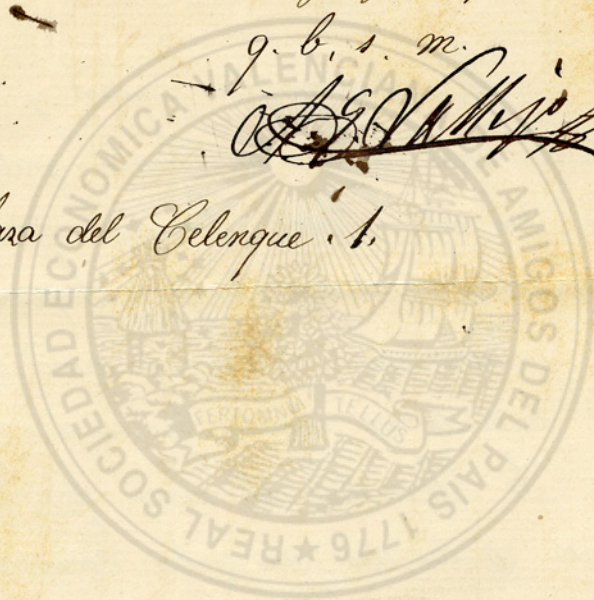 q. b. s. m.
Vallejo
del Celenque. 1.
REAL SOCIEDAD ECONOMICA VALENCIANA DE AMIGOS DEL PAIS 1776
FERT OMNIA TELLUS